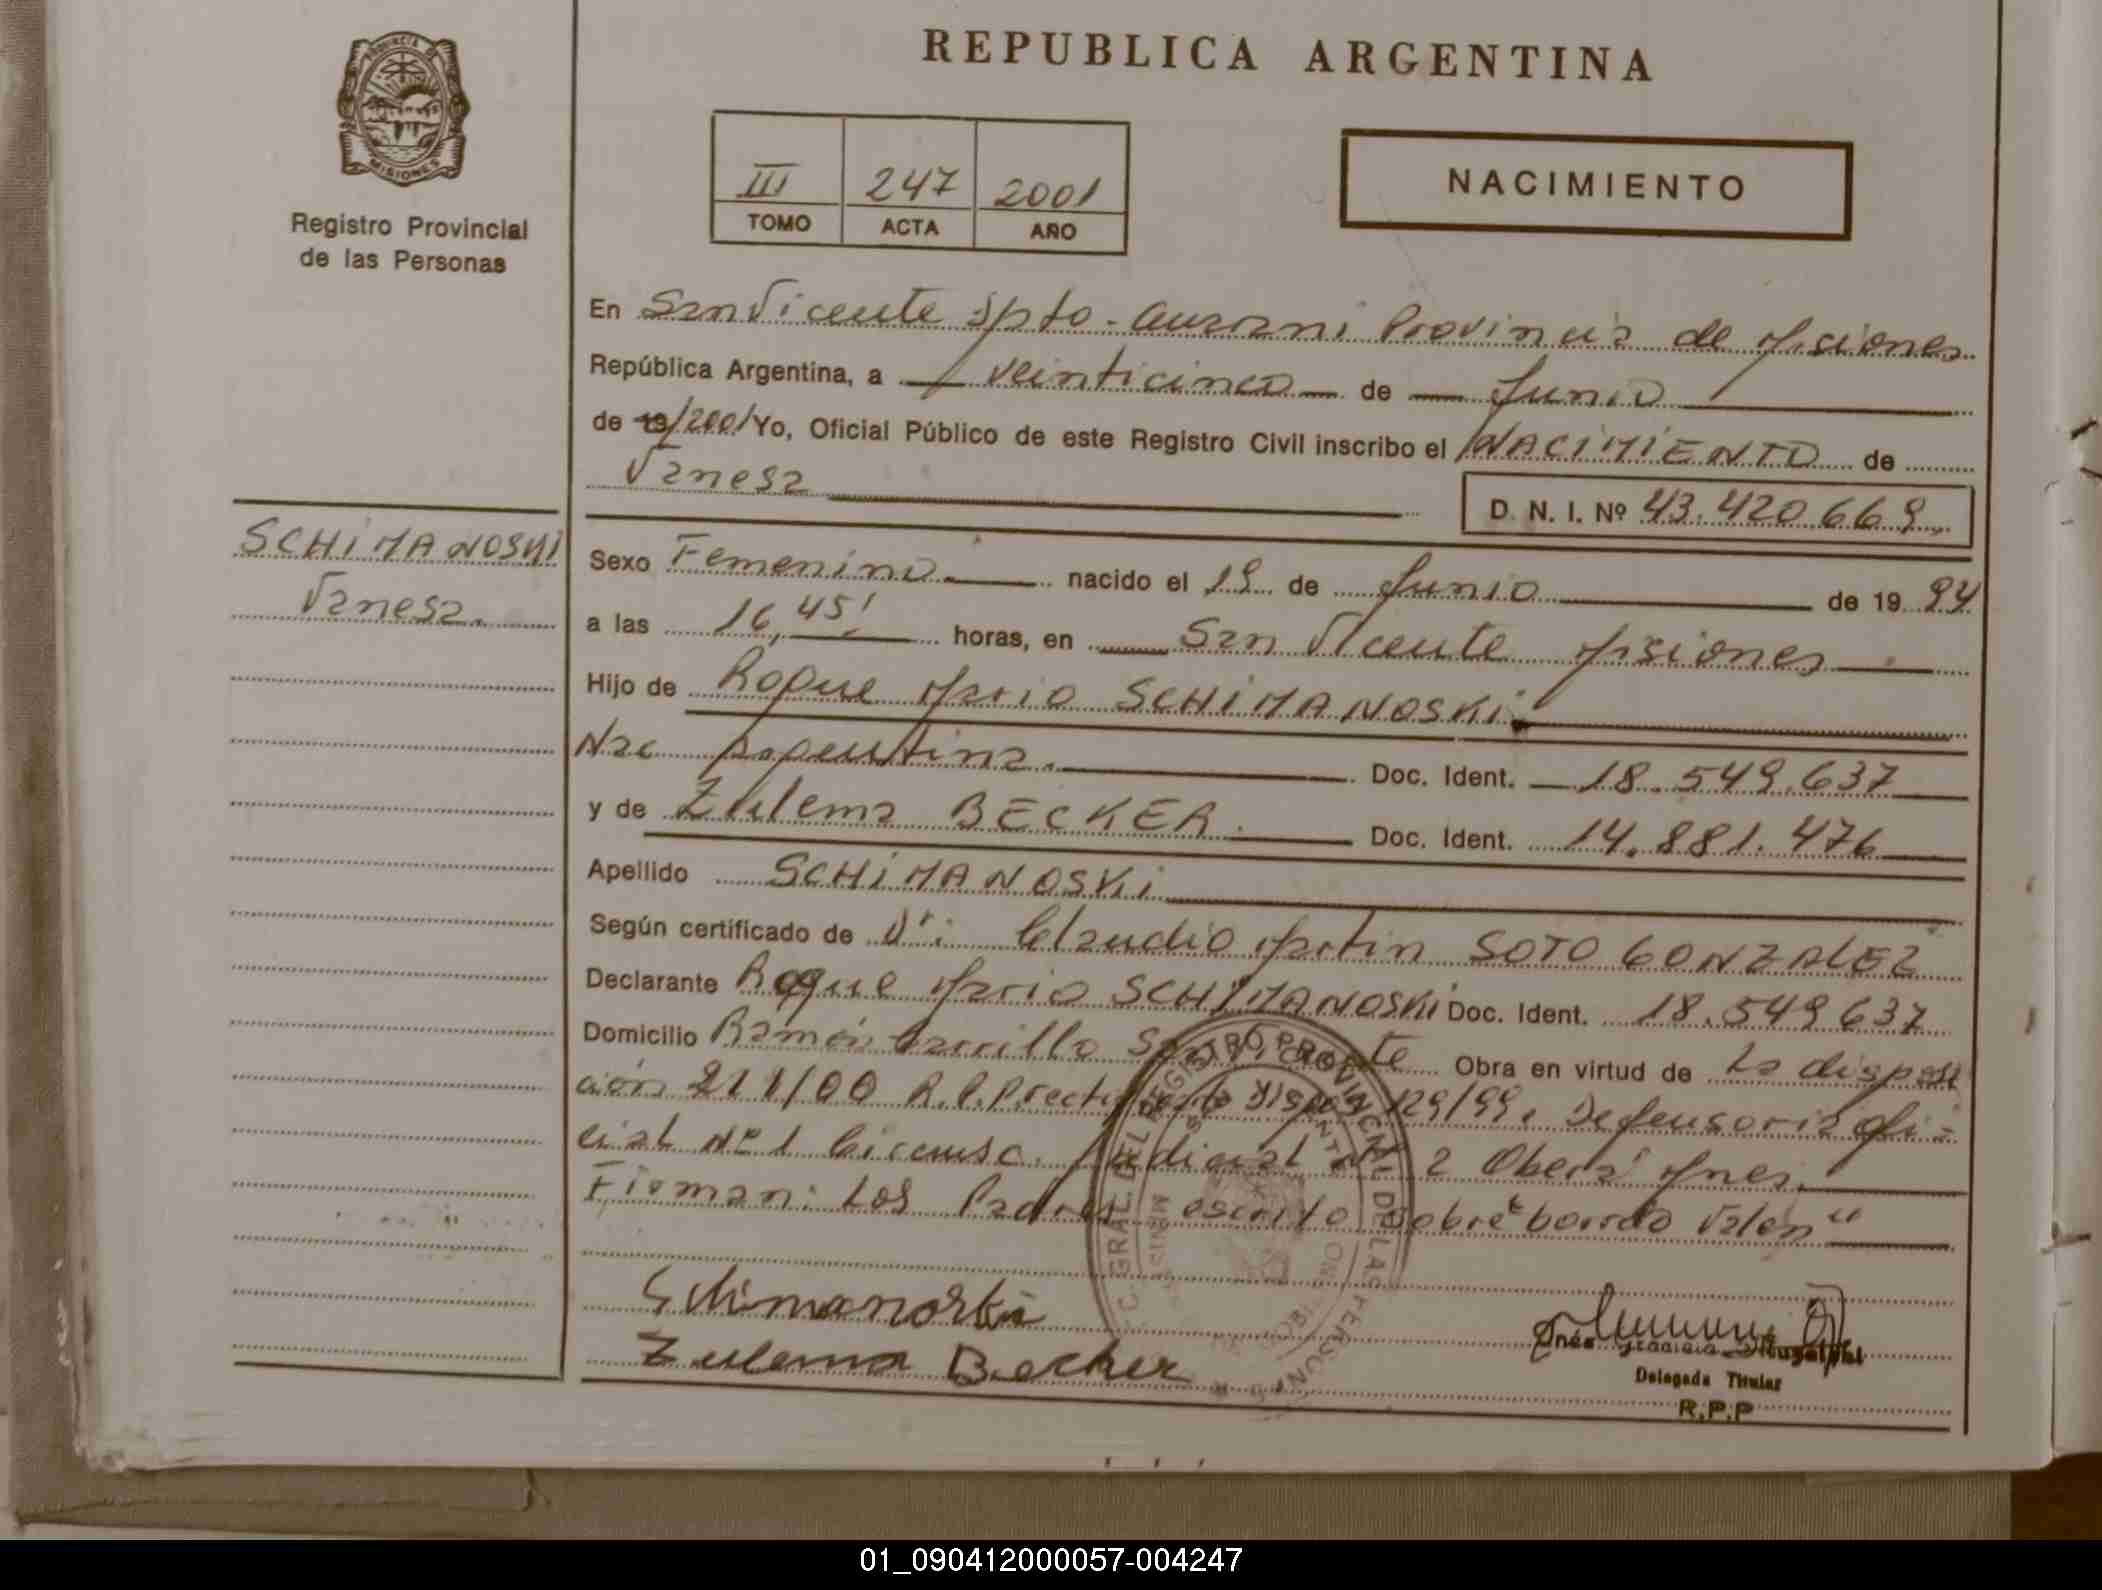 REPUBLICA ARGENTINA
PROVINCIA DE
MISIONES
Registro Provincial
de las Personas
III 247 2001
TOMO ACTA AÑO
NACIMIENTO
En San Vicente Dpto. Guarani Provincia de Misiones
República Argentina, a veinticinco de Junio
de 19/2001 Yo, Oficial Público de este Registro Civil inscribo el NACIMIENTO de
Vanesa
D. N. I. Nº 43.420.669
SCHIMANOSKI
Vanesa.
Sexo Femenino nacido el 19 de Junio de 19 94
a las 16,45' horas, en San Vicente Misiones
Hijo de Roque Mario SCHIMANOSKI
Nac Argentina. Doc. Ident. 18.549.637
y de Zulema BECKER. Doc. Ident. 14.881.476
Apellido SCHIMANOSKI
Según certificado de Dr: Claudio Martin SOTO GONZALEZ
Declarante Roque Mario SCHIMANOSKI Doc. Ident. 18.549 637
Domicilio Ramón Carrillo San Vicente Obra en virtud de La disposi
ción 211/00 R.P.P. 129/99. Defensoria Ofi-
cial Nº 1 Judicial 2 Oberá Mnes.
Firman: Los Padres escrito Sobre borrado Valen"
Schimanoski
Zulema Becker
Delegada Titular
R.P.P
01_090412000057-004247